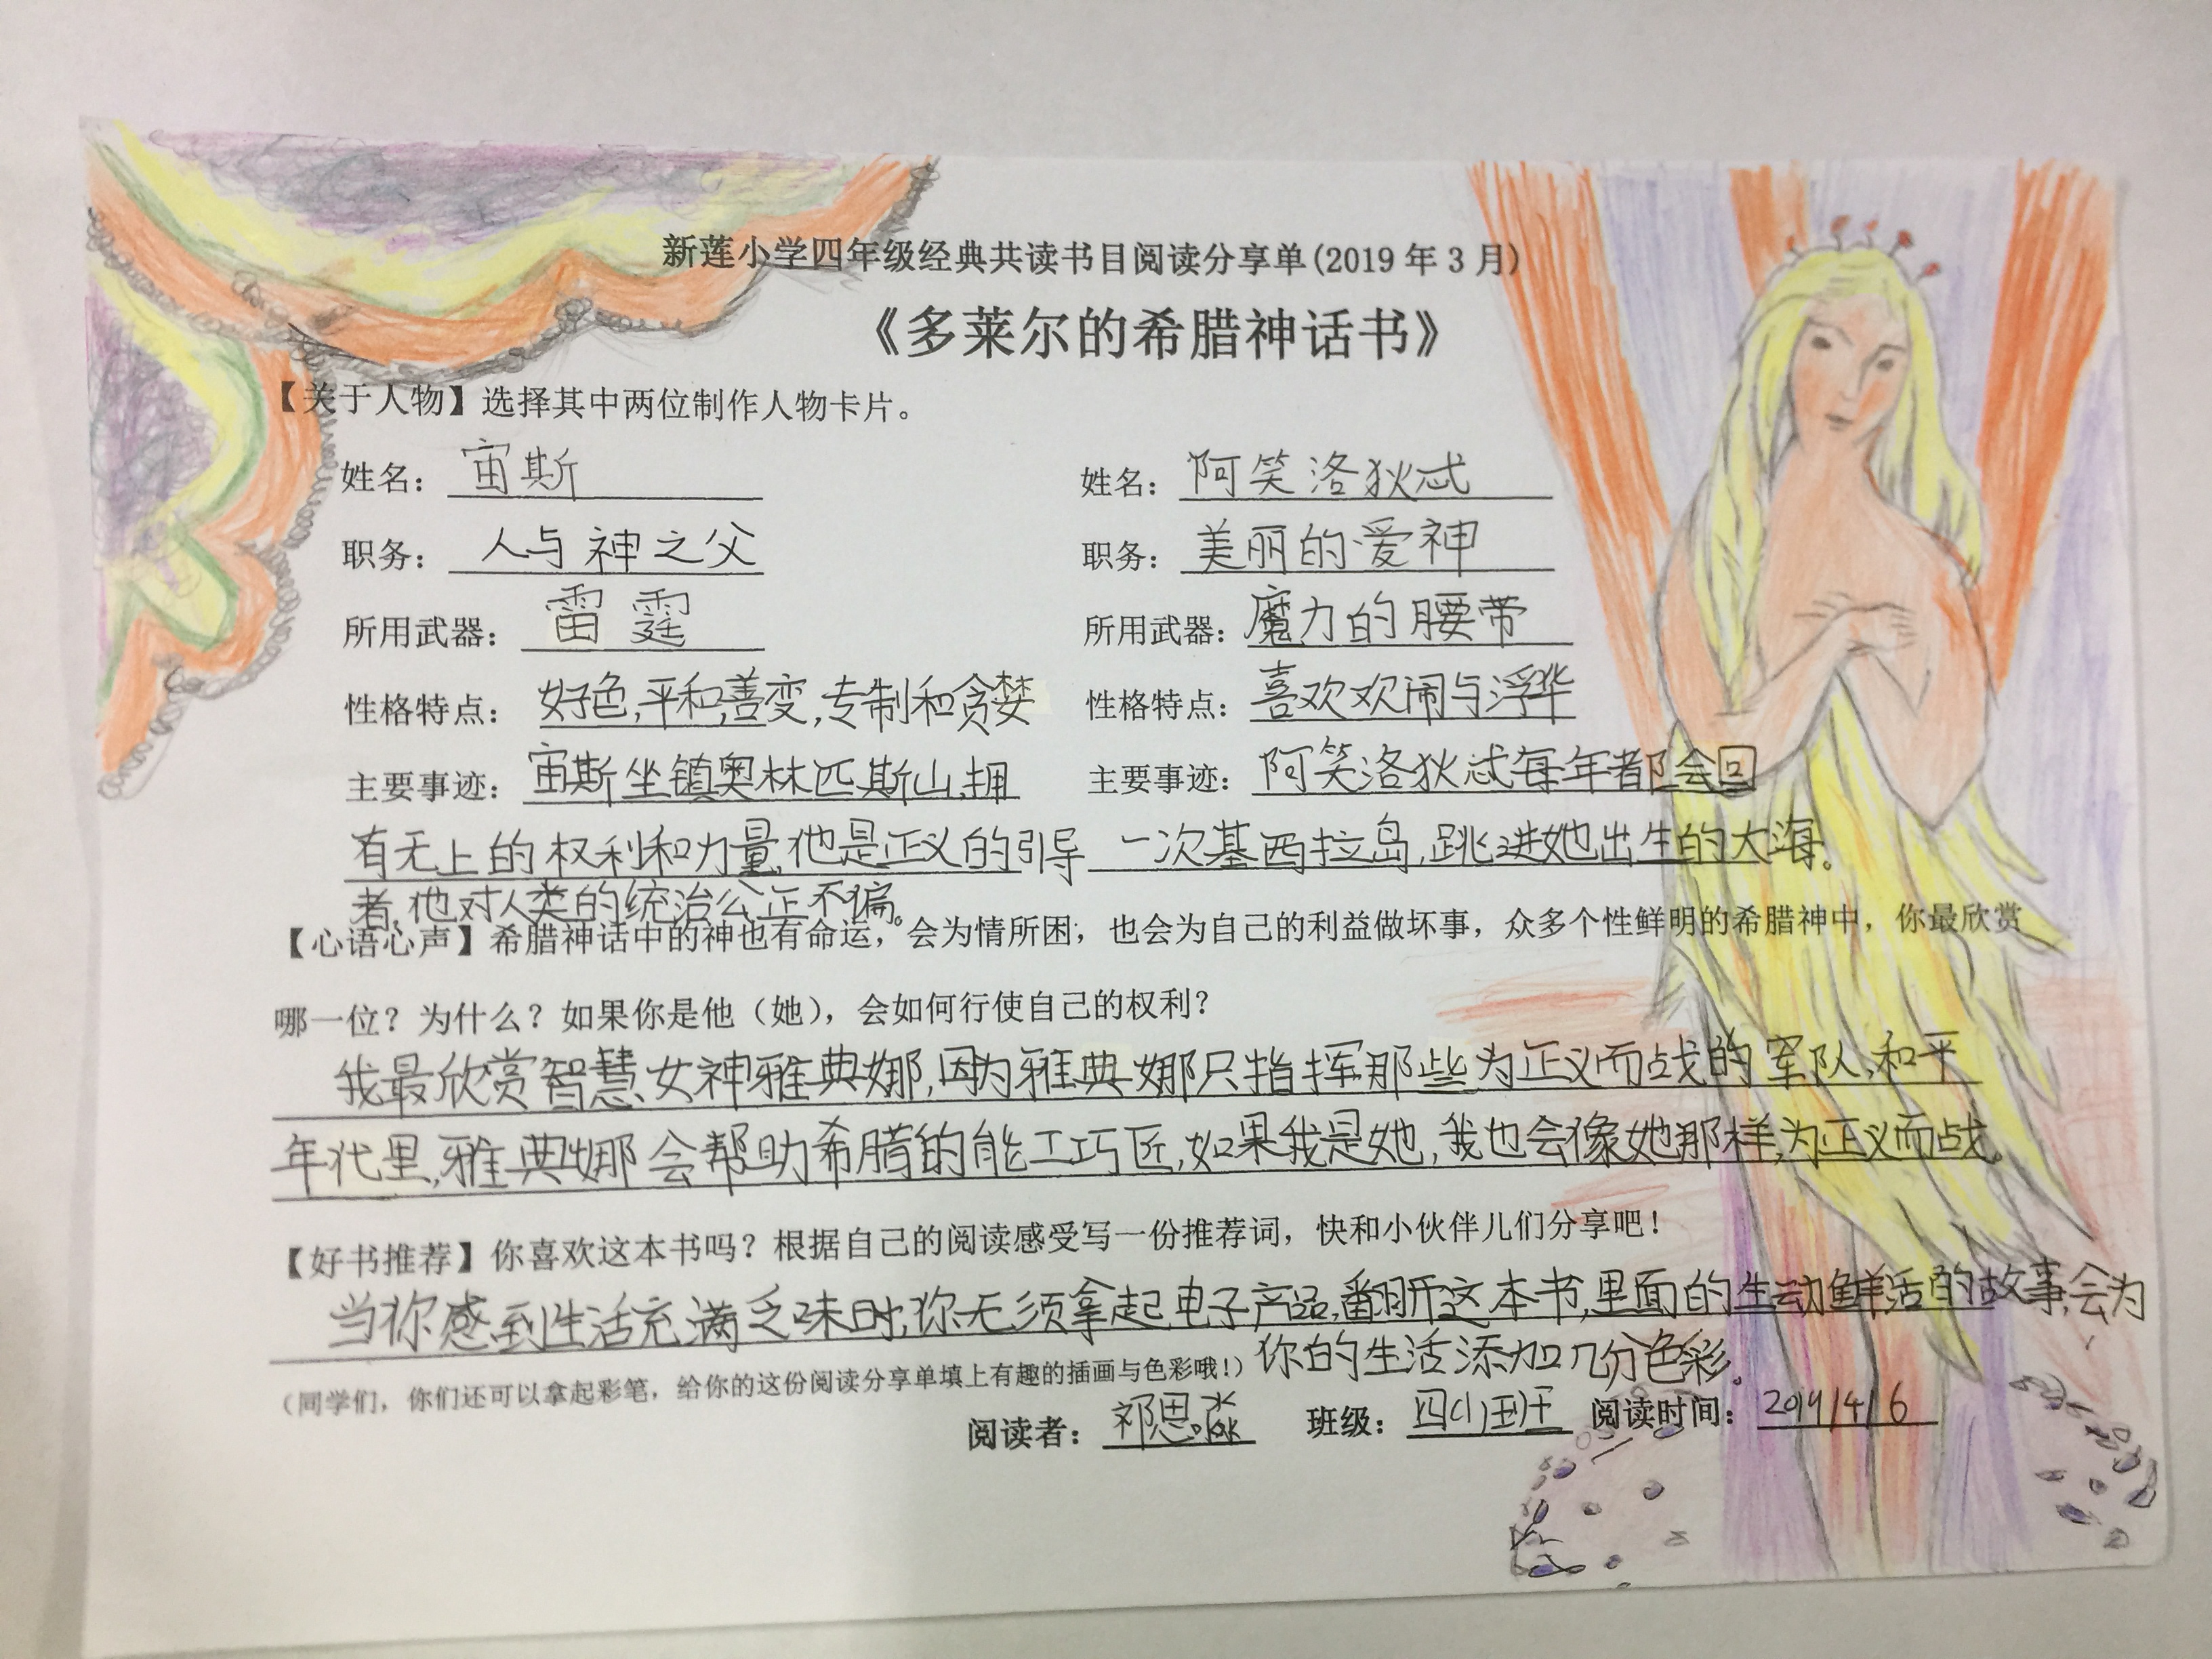 新莲小学四年级经典共读书目阅读分享单(2019年3月)
《多莱尔的希腊神话书》
【关于人物】选择其中两位制作人物卡片。
姓名：宙斯
职务：人与神之父
所用武器：雷霆
性格特点：好色,平和,善变,专制和贪婪
主要事迹：宙斯坐镇奥林匹斯山,拥
有无上的权利和力量,他是正义的引导
者,他对人类的统治公正不偏。
姓名：阿笑洛狄忒
职务：美丽的爱神
所用武器：魔力的腰带
性格特点：喜欢欢闹与浮华
主要事迹：阿笑洛狄忒每年都会回
一次基西拉岛,跳进她出生的大海。
【心语心声】希腊神话中的神也有命运，会为情所困，也会为自己的利益做坏事，众多个性鲜明的希腊神中，你最欣赏
哪一位？为什么？如果你是他（她），会如何行使自己的权利？
我最欣赏智慧女神雅典娜,因为雅典娜只指挥那些为正义而战的军队,和平
年代里,雅典娜会帮助希腊的能工巧匠,如果我是她,我也会像她那样,为正义而战。
【好书推荐】你喜欢这本书吗？根据自己的阅读感受写一份推荐词，快和小伙伴儿们分享吧！
当你感到生活充满乏味时,你无须拿起电子产品,翻开这本书,里面的生动鲜活的故事,会为
你的生活添加几分色彩。
（同学们，你们还可以拿起彩笔，给你的这份阅读分享单填上有趣的插画与色彩哦！）
阅读者：祁思 班级：四(1)班 阅读时间：2019/4/6